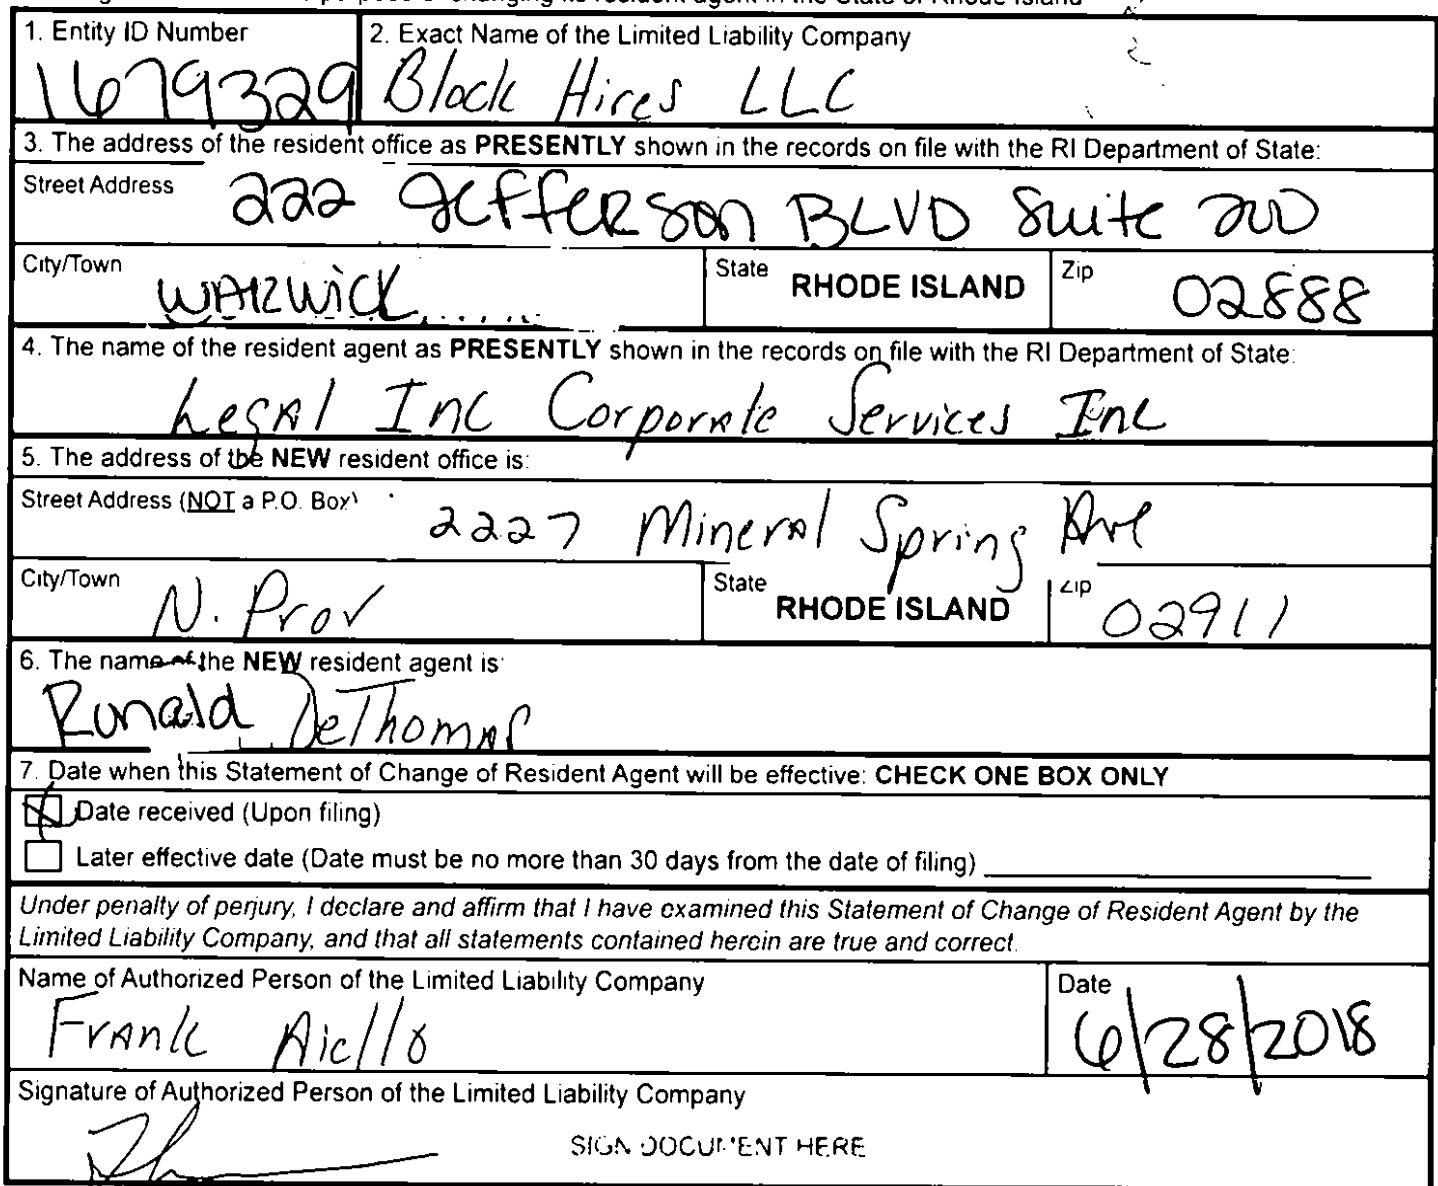 purpose of changing its resident agent in the State of Rhode Island
1. Entity ID Number
1679329
2. Exact Name of the Limited Liability Company
Block Hires LLC
3. The address of the resident office as PRESENTLY shown in the records on file with the RI Department of State:
Street Address 222 Jefferson BLVD Suite 200
City/Town WARWICK
State RHODE ISLAND
Zip 02888
4. The name of the resident agent as PRESENTLY shown in the records on file with the RI Department of State:
Legal Inc Corporate Services Inc
5. The address of the NEW resident office is:
Street Address (NOT a P.O. Box) 2227 Mineral Spring Ave
City/Town N. Prov
State RHODE ISLAND
Zip 02911
6. The name of the NEW resident agent is:
Ronald DeThomas
7. Date when this Statement of Change of Resident Agent will be effective: CHECK ONE BOX ONLY
Date received (Upon filing)
Later effective date (Date must be no more than 30 days from the date of filing)
Under penalty of perjury, I declare and affirm that I have examined this Statement of Change of Resident Agent by the
Limited Liability Company, and that all statements contained herein are true and correct.
Name of Authorized Person of the Limited Liability Company
Frank Aiello
Date
6/28/2018
Signature of Authorized Person of the Limited Liability Company
SIGN DOCUMENT HERE